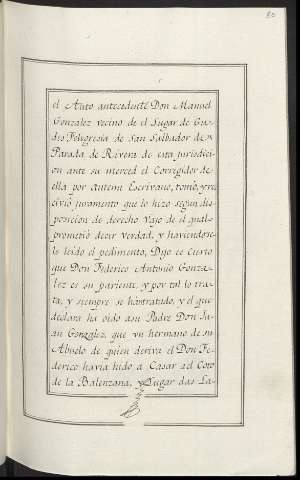 80
el Auto antecedente Don Manuel
Gonzalez vecino de el Lugar de
des Feligresia de San Salbador de
Parada de Rivera de esta jurisdici
on ante su merced el Corregidor de
ella por antemi Escrivano, tomó, y re
civió juramento que lo hizo segun dis
posicion de derecho vajo de el qual
prometió decir verdad, y haviendose
le leido el pedimento, Dijo es cierto
que Don Federico Antonio Gonza
lez es su pariente, y por tal lo tra
ta, y siempre se ha tratado, y el que
declara ha oido asu Padre Don Ju
an Gonzalez, que un hermano de su
Abuelo de quien deriva el Don Fe
derico havia hido a Casar al Coto
de la Balenzana, y Lugar das La-